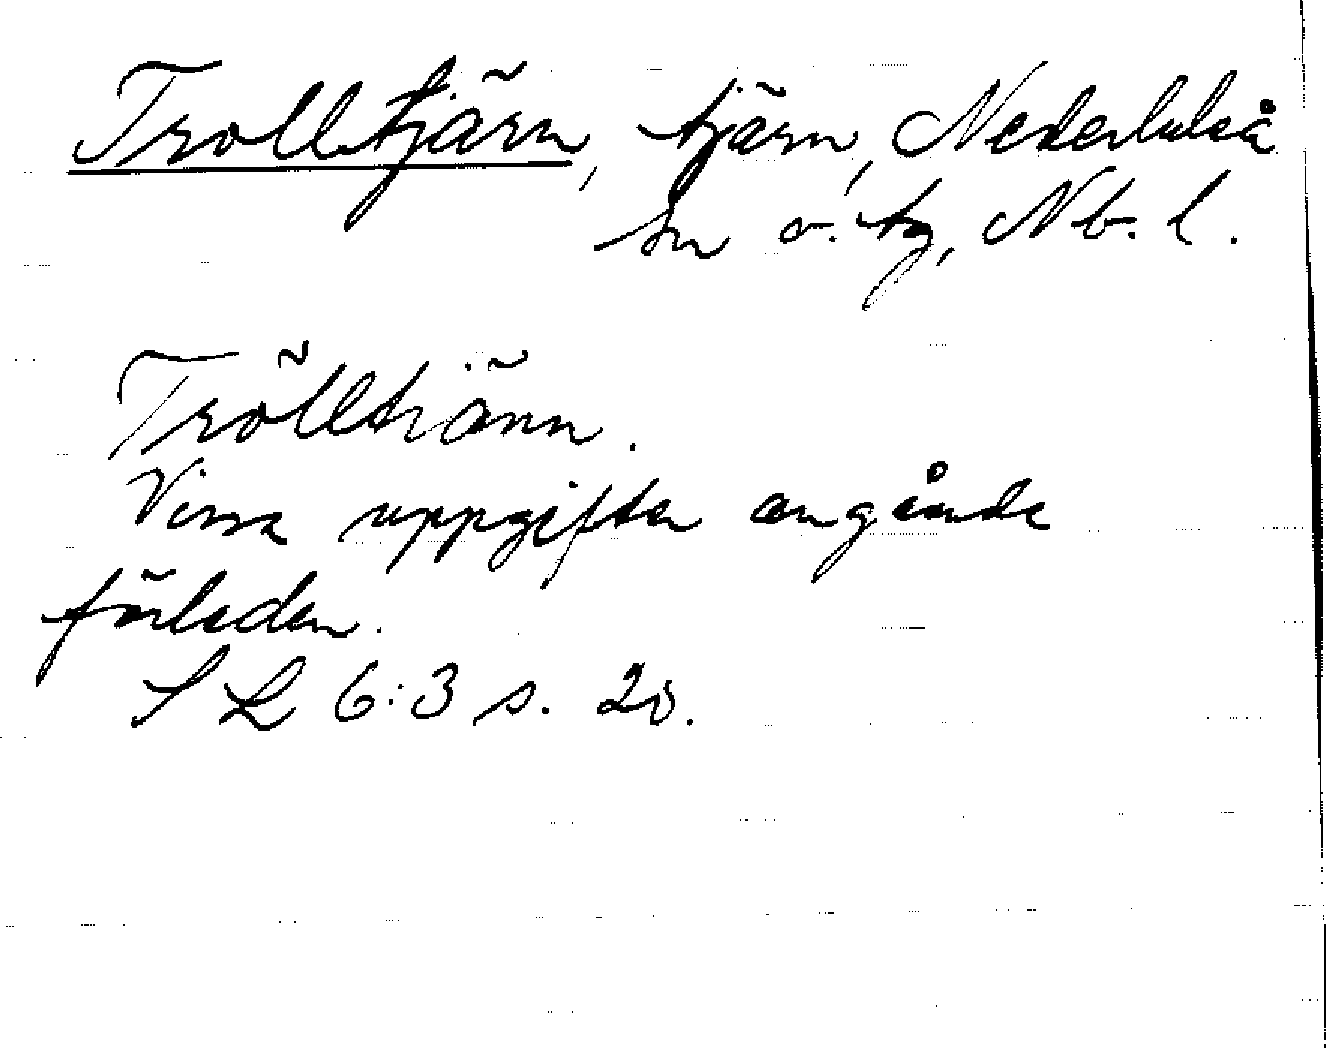 Trolltjärn, tjärn, Nederluleå
sn o. tg, Nb. l.
Trölltiänn.
Vissa uppgifter angående
förleden.
SL 6:3 s. 20.